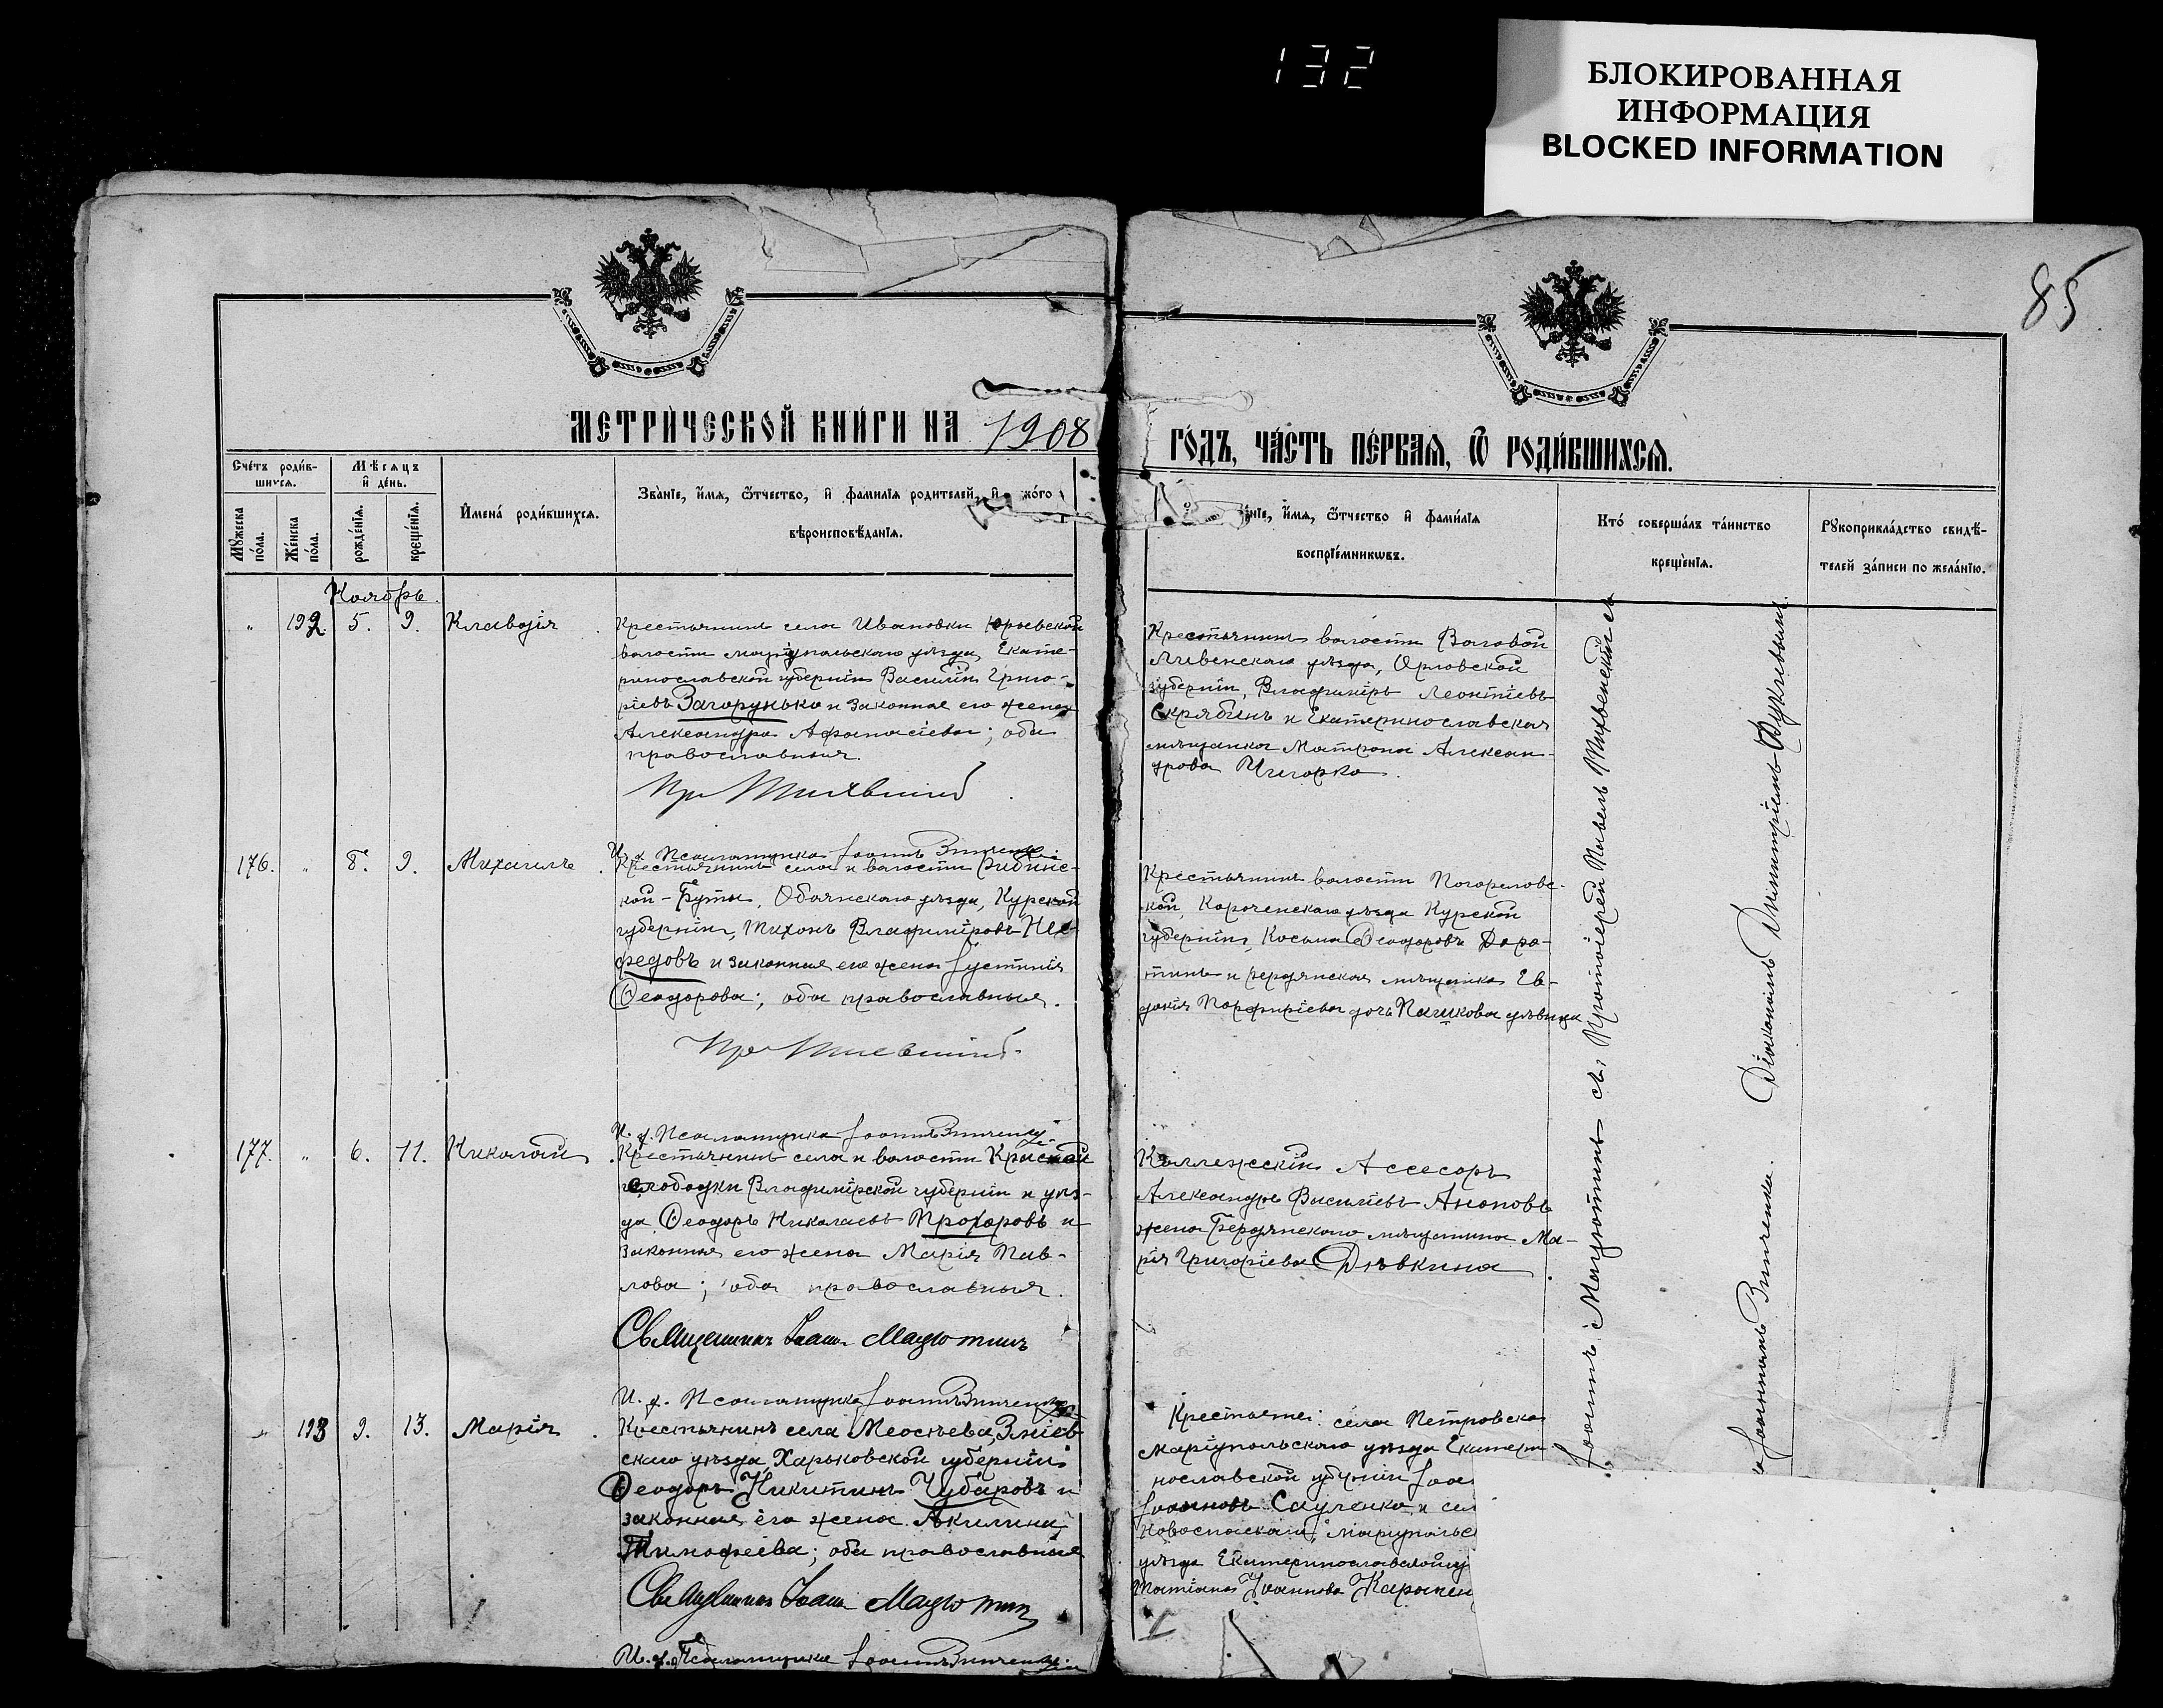 132
БЛОКИРОВАННАЯ
ИНФОРМАЦИЯ
BLOCKED INFORMATION
85
МЕТРИЧЕСКОЙ КНИГИ НА 1908
ГОДЪ, ЧАСТЬ ПЕРВАЯ, Ѿ РОДИВШИХСЯ.
Счетъ родив-
шихся.
Мѣсяцъ
и день.
Мужеска
пола.
Женска
пола.
рожденія.
крещенія.
Имена родившихся.
Званіе, имя, отчество, и фамилія родителей, и
вѣроисповѣданія.
имя, отчество и фамилія
воспріемниковъ.
Кто совершалъ таинство
крещенія.
Рукоприкладство свидѣ-
телей записи по желанію.
Ноябрь.
" 192 5. 9. Клавдія
Крестьянинъ села Ивановки Юрьевской
волости маріупольскаго уѣзда, Екате-
ринославской губерніи Василій Григо-
ріевъ Загорунько и законная его жена
Александра Афанасіева; оба
православныя.
Крестьянинъ волости Воловой
Ливенскаго уѣзда, Орловской
губерніи, Владиміръ Леонтіевъ
Скрябинъ и Екатеринославская
мѣщанка Матрона Алексан-
дрова
И. д. Псаломщика Іоаннъ Зинченко
176. " 8. 9. Михаилъ
Крестьянинъ села и волости
Обоянскаго уѣзда, Курской
губерніи, Тихонъ Владиміровъ Не-
федовъ и законная его жена Іустинія
Ѳеодорова; оба православныя.
Крестьянинъ волости Погореловс-
кой, Короченскаго уѣзда Курской
губерніи, Косьма Ѳеодоровъ Доро-
тинъ и бердянская мѣщанка Ев-
докія Порфиріева дочь Пашкова дѣвица
И. д. Псаломщика Іоаннъ Зинченко
177. " 6. 11. Николай
Крестьянинъ села и волости Красной
слободки Владимірской губерніи и уѣз-
да Ѳеодоръ Николаевъ Прохоровъ и
законная его жена Марія Пав-
лова; оба православныя.
Священникъ Іоаннъ Мацютинъ
Коллежскій Ассесоръ
Александръ Василіевъ Аноповъ
жена Бердянскаго мѣщанина Ма-
рія Григоріева Дѣвкина
И. д. Псаломщика Іоаннъ Зинченко
" 193 9. 13. Марія
Крестьянинъ села Зміев-
скаго уѣзда, Харьковской губерніи
Ѳеодоръ Никитинъ Чубаровъ и
законная его жена Акилина
Тимофеева; оба православныя
Священникъ Іоаннъ Мацютинъ
Крестьяне: села Петровска
Маріупольскаго уѣзда Екатери-
нославской губерніи Іоа
Іоанновъ Сауленко и сел
Новоспаскаго, Маріупольс
уѣзда Екатеринославской гу
Татіана Іоаннова
И. д. Псаломщика Іоаннъ Зинченко
Іоаннъ Мацютинъ св. Протоіерей Павелъ Тихвенскій съ
Іоанномъ Зинченко. Діакономъ Димитріемъ